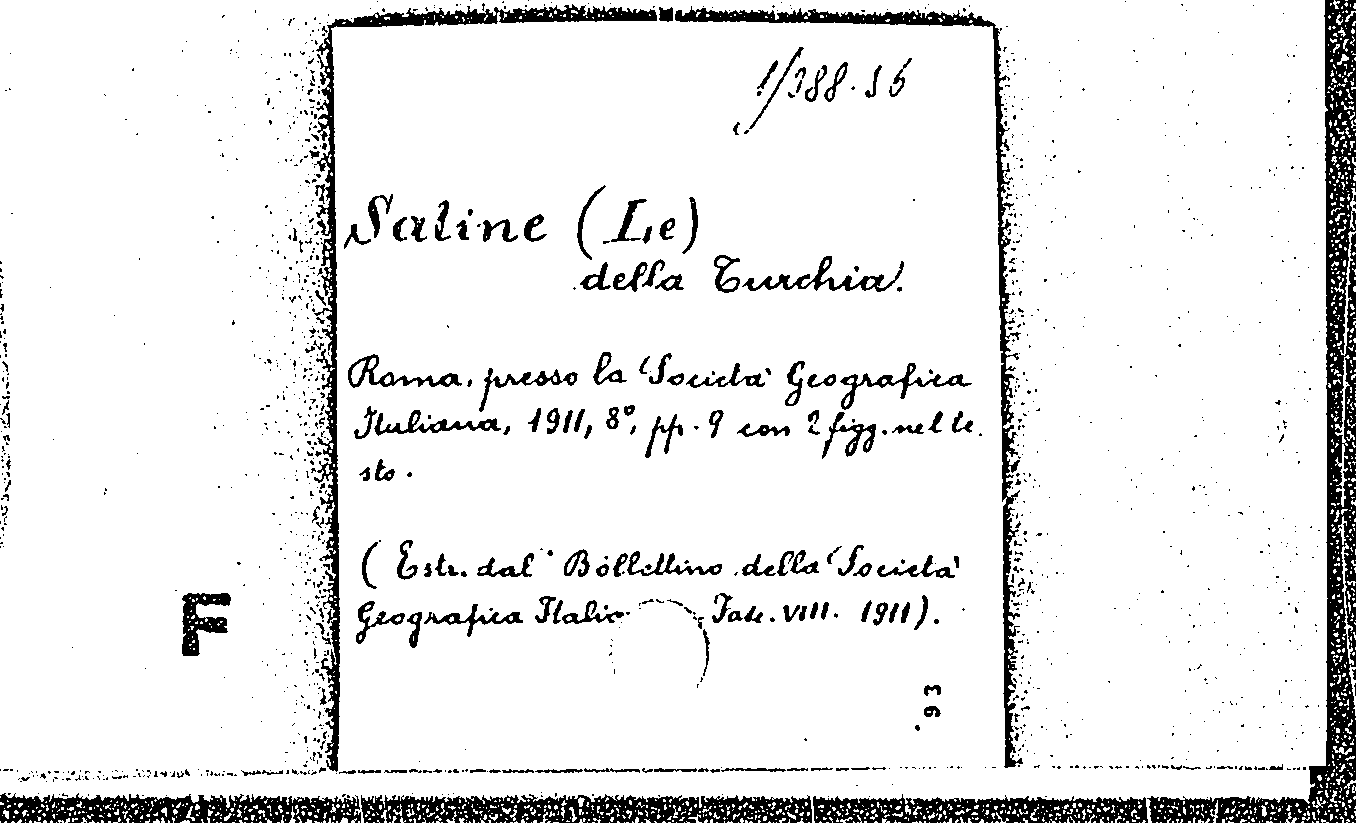 1/388.56
Saline (Le)
della Turchia.
Roma, presso la Società Geografica
Italiana, 1911, 8°, pp. 9 con 2 figg. nel te.
sto.
(Estr. dal Bollettino della Società
Geografica Italia Fasc. VIII. 1911).
F
93